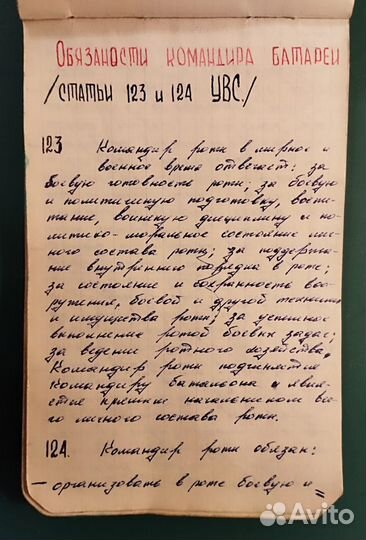 ОБЯЗАНОСТИ КОМАНДИРА БАТАРЕИ
/СТАТЬИ 123 и 124 УВС./
123 Командир роты в мирное и
военное время отвечает: за
боевую готовность роты; за боевую
и политическую подготовку, воспи-
тание, воинскую дисциплину и по-
литико-моральное состояние лич-
ного состава роты; за поддержа-
ние внутреннего порядка в роте;
за состояние и сохранность воо-
ружения, боевой и другой техники
и имущества роты; за успешное
выполнение ротой боевых задач;
за ведение ротного хозяйства.
Командир роты подчиняется
командиру батальона и явля-
ется прямым начальником все-
го личного состава роты.
124. Командир роты обязан:
– организовать в роте боевую и
Avito